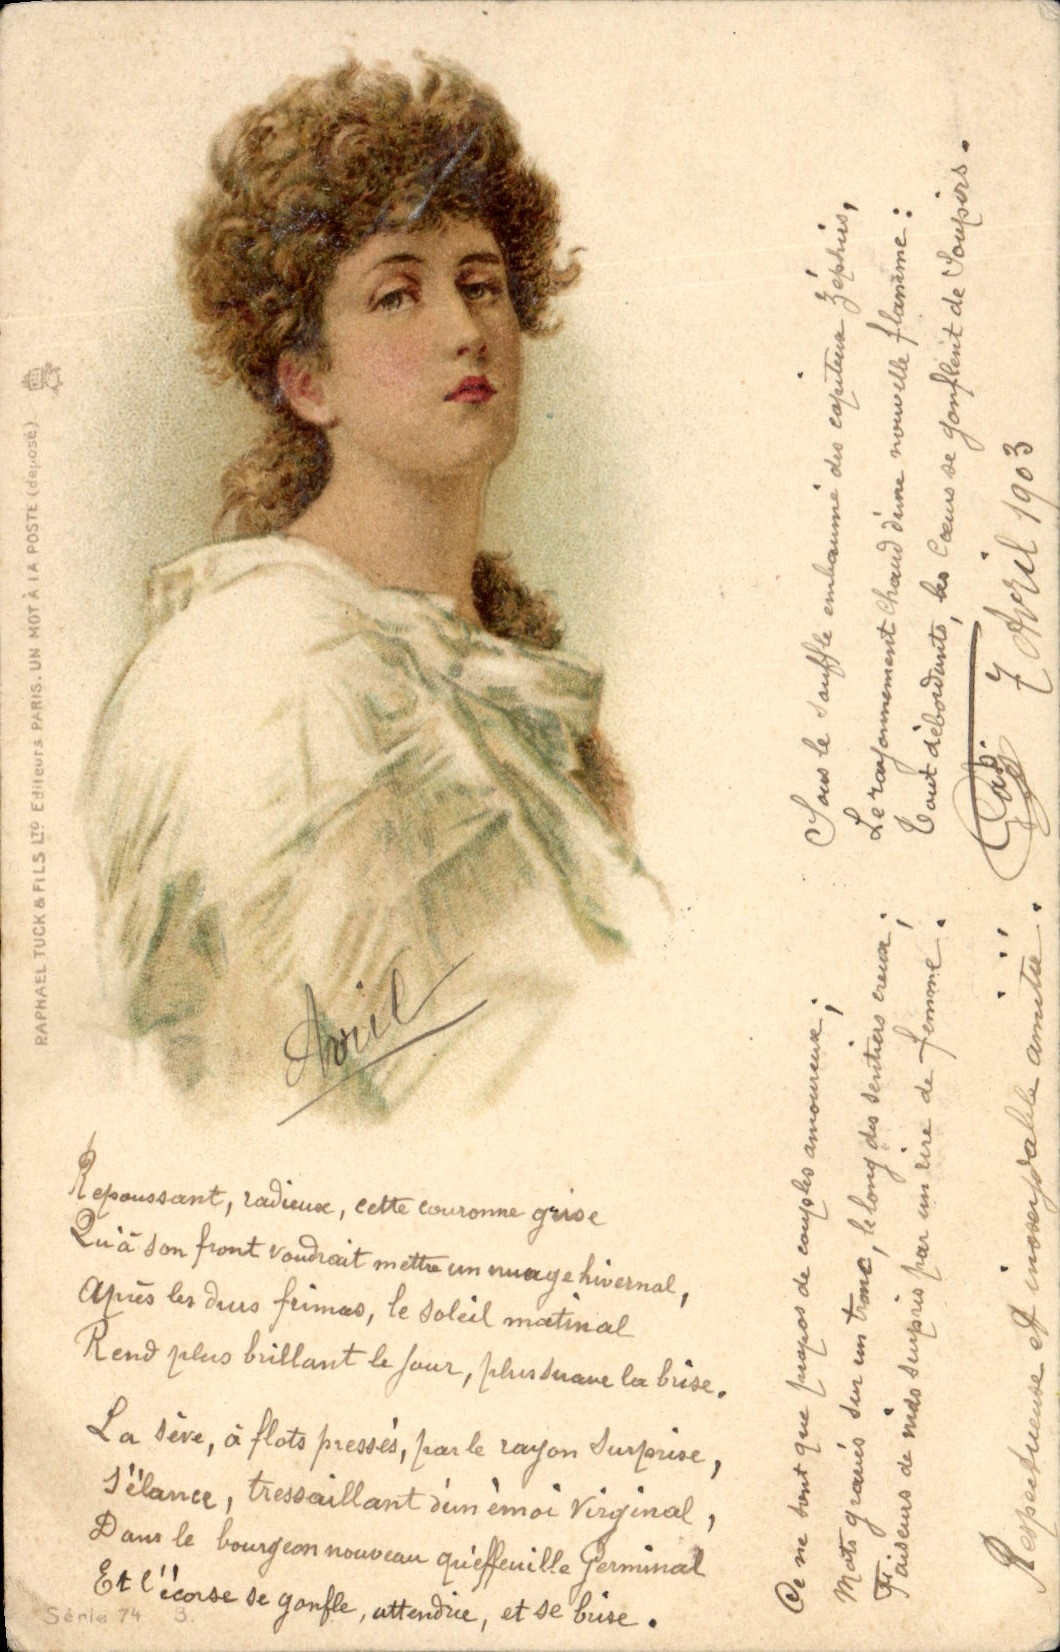 RAPHAEL TUCK & FILS LTD Editeurs PARIS. UN MOT À LA POSTE (déposé)
Avril
Repoussant, radieux, cette couronne grise
Qu'à son front voudrait mettre un nuage hivernal,
Après les durs frimas, le soleil matinal
Rend plus brillant le jour, plus suave la brise.
La sève, à flots pressés, par le rayon surprise,
S'élance, tressaillant d'un émoi Virginal,
Dans le bourgeon nouveau qu'effeuille Germinal
Et l'écorse se gonfle, attendrie, et se brise.
Série 74 3.
Ce ne sont que propos de couples amoureux;
Mots gravés sur un tronc, le long des sentiers creux;
Faiseurs de nids surpris par un rire de femme.
Sous le souffle embaumé des capiteux Zéphirs,
Le rayonnement chaud d'une nouvelle flamme:
Tout débordants, les Cœurs se gonflent de Soupirs.
Respectueuse et inoxydable amitié.
Gab. 7 Avril 1903